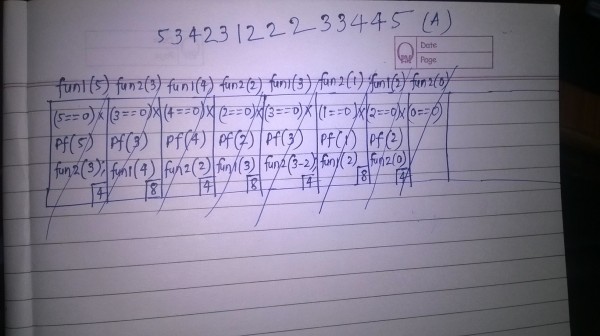 534231222 33445 (A)
Date
Page
fun1(5) fun2(3) fun1(4) fun2(2) fun1(3) fun2(1) fun1(2) fun2(0)
(5==0)x (3==0)x (4==0)x (2==0)x (3==0)x (1==0)x (2==0)x (0==0)
Pf(5) Pf(3) Pf(4) Pf(2) Pf(3) Pf(1) Pf(2)
fun2(3); fun1(4) fun2(2) fun1(3) fun2(3-2) fun1(2) fun2(0)
4 8 4 8 4 8 4